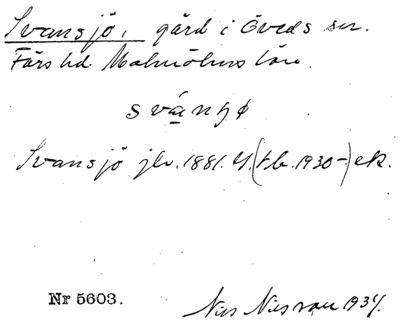 Svansjö, gård i Öveds sn.
Färs hd Malmöhus län.
svánɧø
Svansjö jlr. 1881. 4. (tb. 1930-) ek.
Nr 5603.
Nils Nilsson 1934.